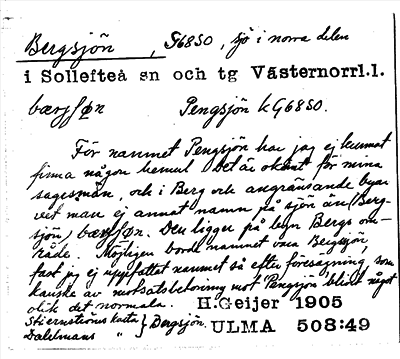 Bergsjön, G6850, sjö i norra delen
i Sollefteå sn och tg Västernorrl.l.
bærjsøn Pengsjön k G6850.
För namnet Pengsjön har jag ej kunnat
finna någon hemul. Det är okänt för mina
sagesmän, och i Berg och angränsande byar
vet man ej annat namn på sjön än (Berg-
sjön) bærjsøn. Den ligger på byn Bergs om-
råde. Möjligen borde namnet vara Bergsjön,
fast jag ej uppfattat namnet så efter föresägning, som
kanske av motsatsbetoning mot Pengsjön blivit något
olik det normala. H.Geijer 1905
Stiernströms karta } Bergsjön. ULMA 508:49
Dalelmans "